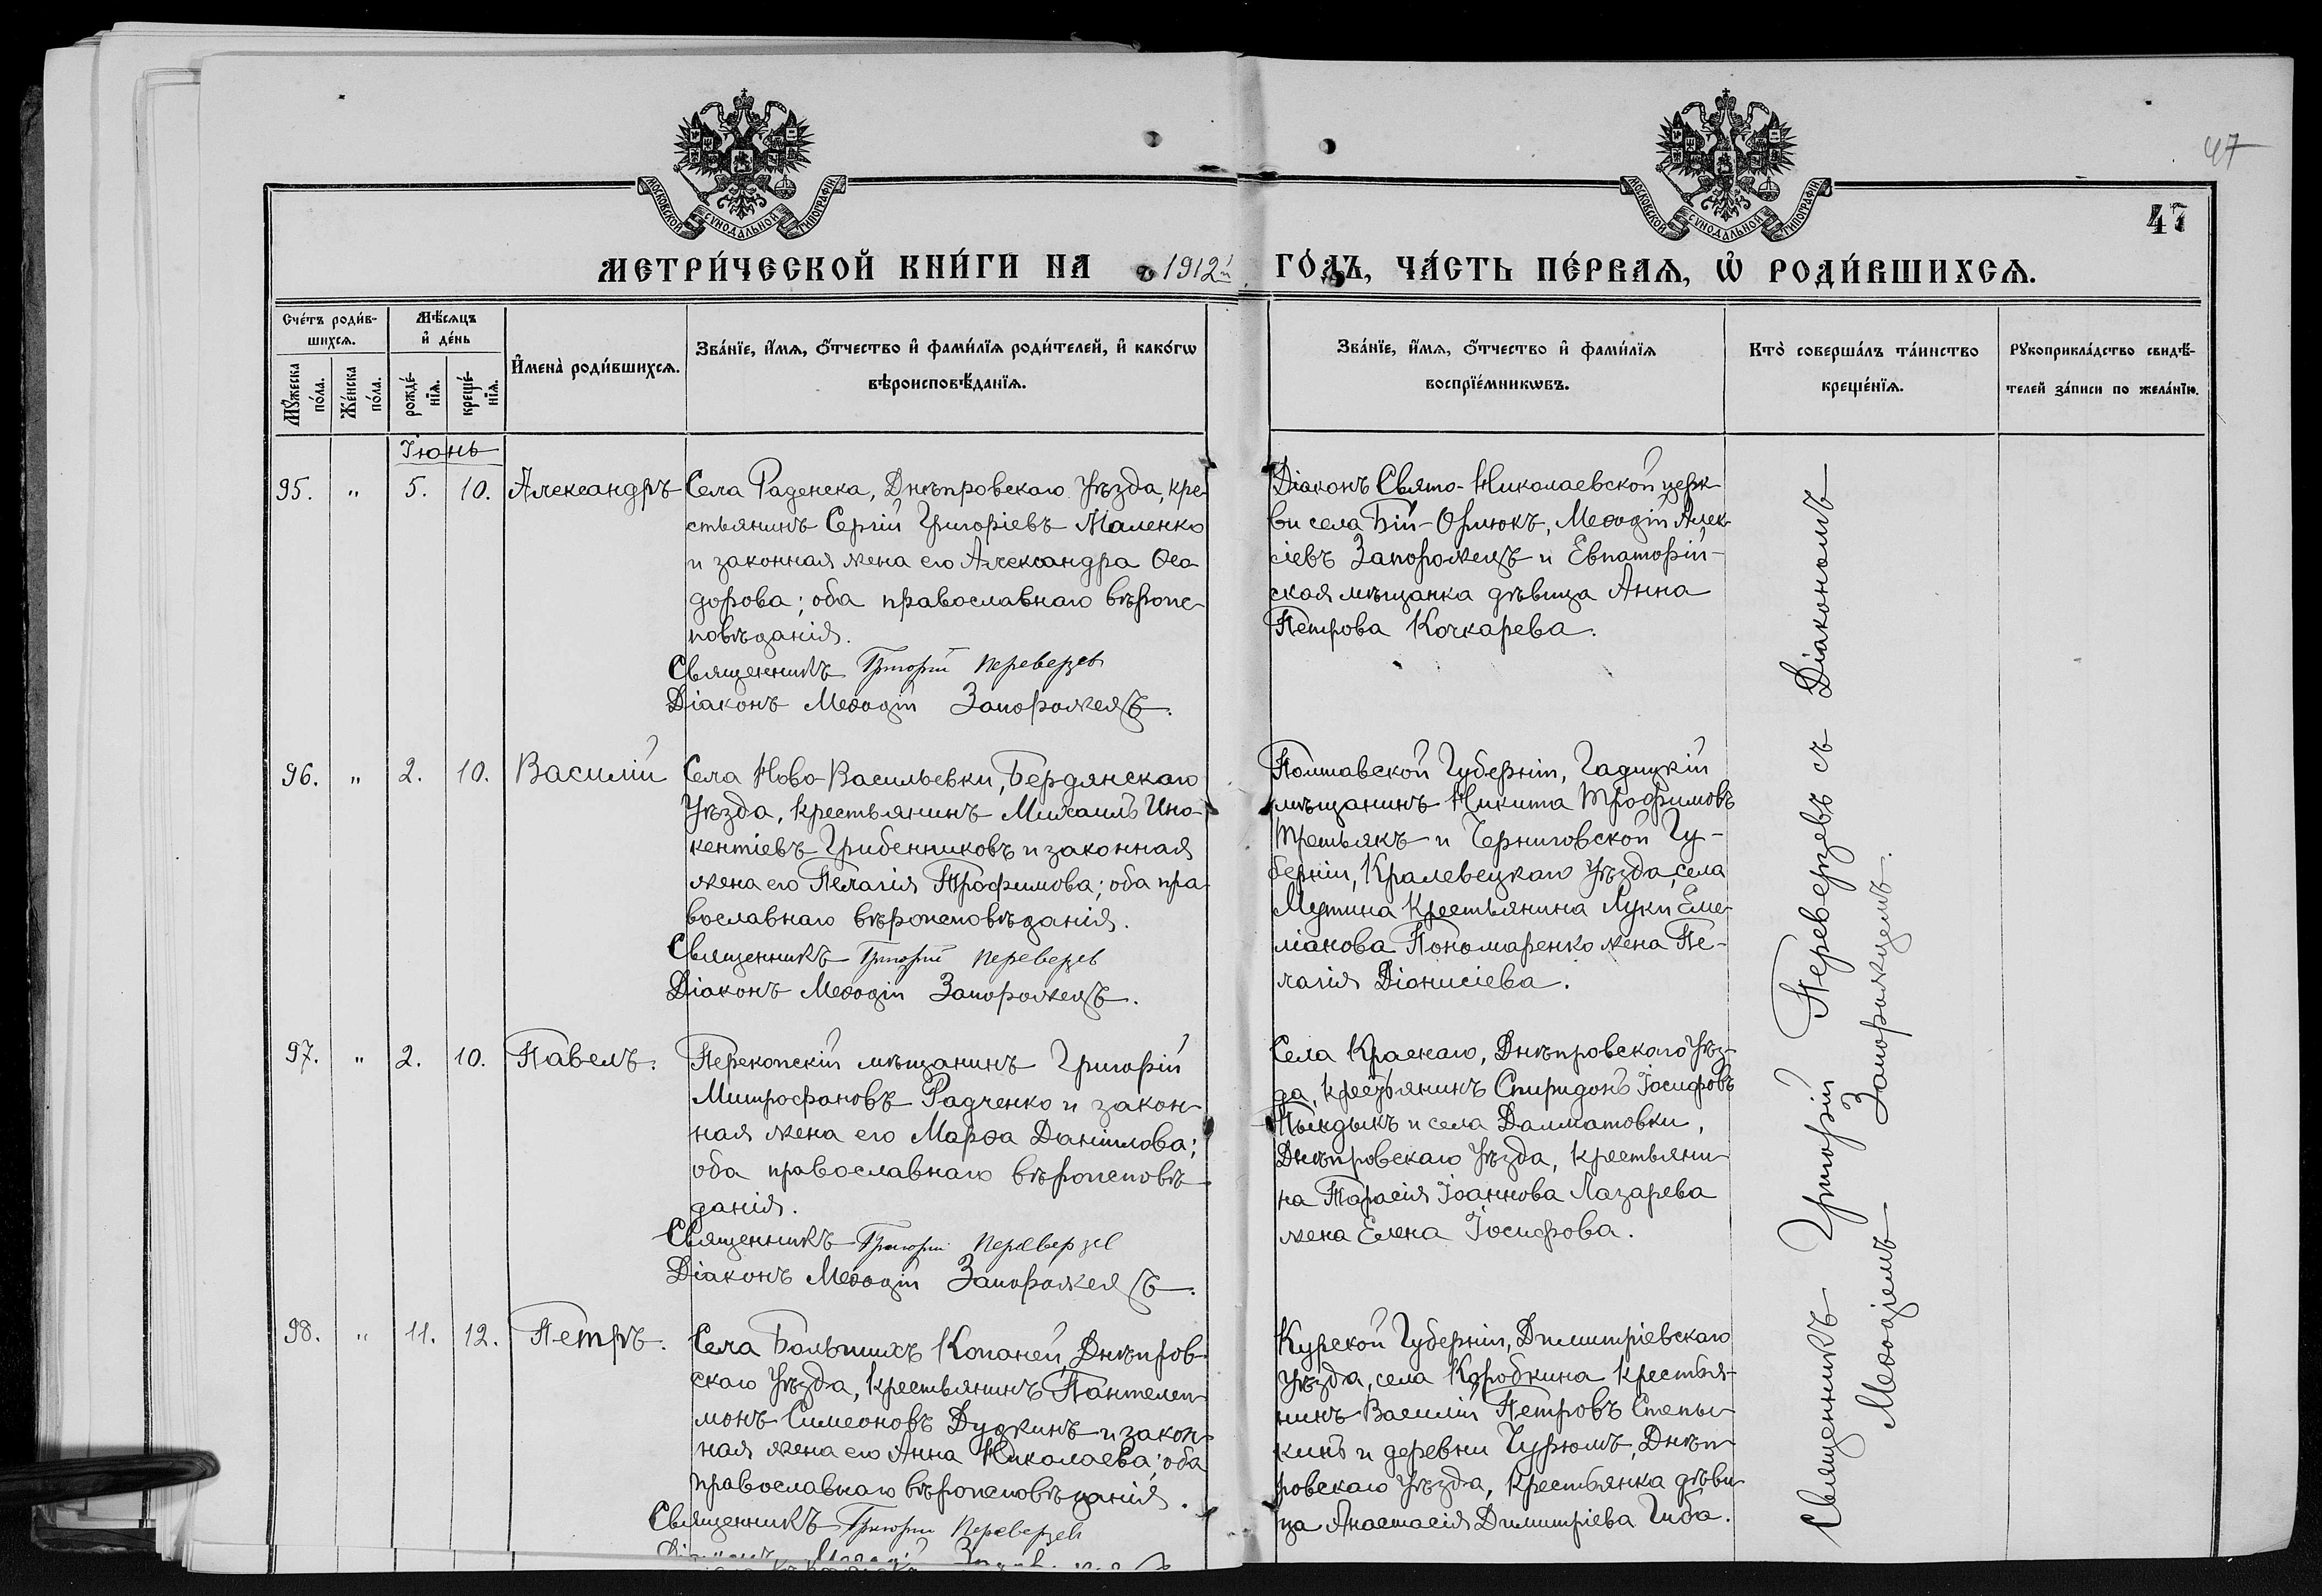 47
МОСКОВСКОЙ СѴНОДАЛЬНОЙ ТИПОГРАФІИ
МОСКОВСКОЙ СѴНОДАЛЬНОЙ ТИПОГРАФІИ
47
МЕТРИ́ЧЕСКОЙ КНИ́ГИ НА 1912й ГО́ДЪ, ЧА́СТЬ ПЕ́РВАѦ, Ѡ҆ РОДИ́ВШИХСѦ.
Сче́тъ роди́в-
шихсѧ.
Мꙋ́жеска по́ла.
Же́нска по́ла.
Мѣ́сѧцъ
и҆ де́нь
рожде́-
нїѧ.
креще́-
нїѧ.
И҆мена̀ роди́вшихсѧ.
Зва́нїе, и҆́мѧ, ѻ҆́тчество и҆ фами́лїѧ роди́телей, и҆ како́гѡ
вѣроисповѣ́данїѧ.
Зва́нїе, и҆́мѧ, ѻ҆́тчество и҆ фами́лїѧ
воспрїе́мникѡвъ.
Кто̀ соверша́лъ та́инство
креще́нїѧ.
Рꙋкоприкла́дство свидѣ́-
телей за́писи по жела́нїю.
Іюнь
95. " 5. 10. Александръ
Села Раденска, Днѣпровскаго Уѣзда, кре-
стьянинъ Сергій Григоріевъ Маленко
и законная жена его Александра Ѳео-
дорова; оба православнаго вѣроис-
повѣданія.
Священникъ Григорій Переверзев
Діаконъ Меѳодій Запорожецъ.
Діаконъ Свято-Николаевской церк-
ви села Бій-Орлюкъ, Меѳодій Алек-
сіевъ Запорожецъ и Евпаторій-
ская мѣщанка дѣвица Анна
Петрова Кочкарева.
96. " 2. 10. Василій
Села Ново-Васильевки, Бердянскаго
Уѣзда, крестьянинъ Михаилъ Ино-
кентіевъ Грибенниковъ и законная
жена его Пелагія Трофимова; оба пра-
вославнаго вѣроисповѣданія.
Священникъ Григорій Переверзев
Діаконъ Меѳодій Запорожецъ.
Полтавской Губерніи, Гадяцкій
мѣщанинъ Никита Трофимовъ
Третьякъ и Черниговской Гу-
берніи, Кралевецкаго Уѣзда, села
Мутина крестьянина Луки Еме-
ліанова Пономаренко жена Пе-
лагія Діонисіева.
97. " 2. 10. Павелъ.
Перекопскій мѣщанинъ Григорій
Митрофановъ Радченко и закон-
ная жена его Марѳа Даніилова;
оба православнаго вѣроисповѣ-
данія.
Священникъ Григорій Переверзев
Діаконъ Меѳодій Запорожецъ.
Села Краснаго, Днѣпровскаго Уѣз-
да, крестьянинъ Спиридонъ Іосифовъ
Пындыкъ и села Далматовки,
Днѣпровскаго Уѣзда, крестьяни-
на Тарасія Іоаннова Лазарева
жена Елена Іосифова.
98. " 11. 12. Петръ.
Села Большихъ Копаней, Днѣпров-
скаго Уѣзда, крестьянинъ Пантелеи-
монъ Симеоновъ Дудкинъ и закон-
ная жена его Анна Николаева; оба
православнаго вѣроисповѣданія.
Священникъ Григорій Переверзев
Діаконъ Меѳодій
Курской Губерніи, Димитріевскаго
Уѣзда, села Коробкина крестья-
нинъ Василій Петровъ Степы-
кинъ и деревни Чурюмъ, Днѣп-
ровскаго Уѣзда, крестьянка дѣви-
ца Анастасія Димитріева Гиба.
Священникъ Григорій Переверзевъ съ Діакономъ
Меѳодіемъ Запорожцемъ.